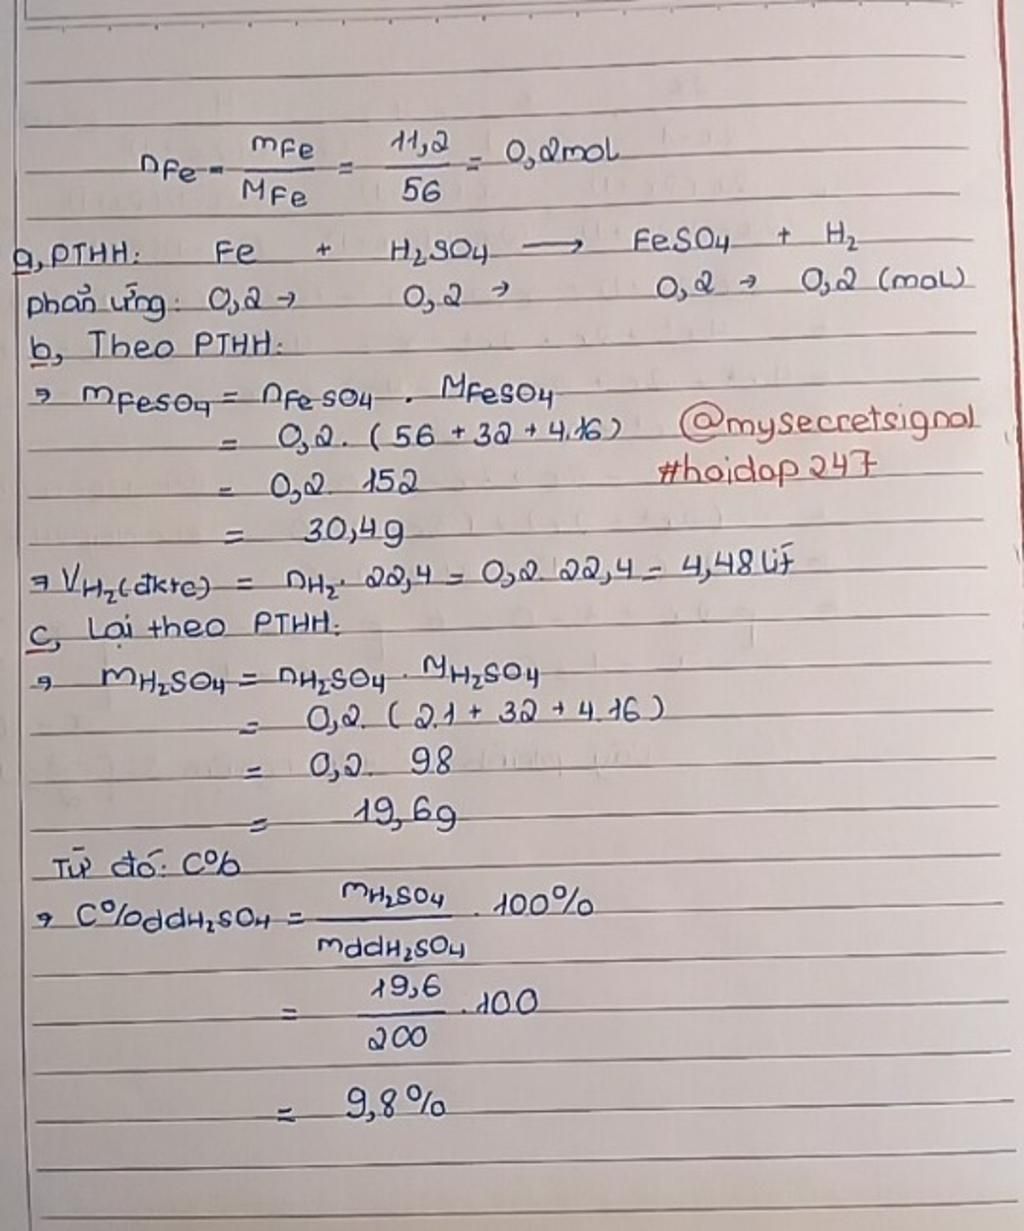 nFe = mFe / MFe = 11,2 / 56 = 0,2mol
a, PTHH: Fe + H₂SO₄ → FeSO₄ + H₂
phản ứng: 0,2 → 0,2 → 0,2 → 0,2 (mol)
b, Theo PTHH:
→ mFeSO₄ = nFeSO₄ . MFeSO₄
= 0,2. (56 + 32 + 4.16)
@mysecretsignal
= 0,2. 152
#hoidap247
= 30,4g
→ VH₂(đktc) = nH₂. 22,4 = 0,2. 22,4 = 4,48 lít
c, Lại theo PTHH:
→ mH₂SO₄ = nH₂SO₄ . MH₂SO₄
= 0,2. (2.1 + 32 + 4.16)
= 0,2. 98
= 19,6g
Từ đó: C%
→ C%ddH₂SO₄ = mH₂SO₄ / mddH₂SO₄ . 100%
= 19,6 / 200 . 100
= 9,8%